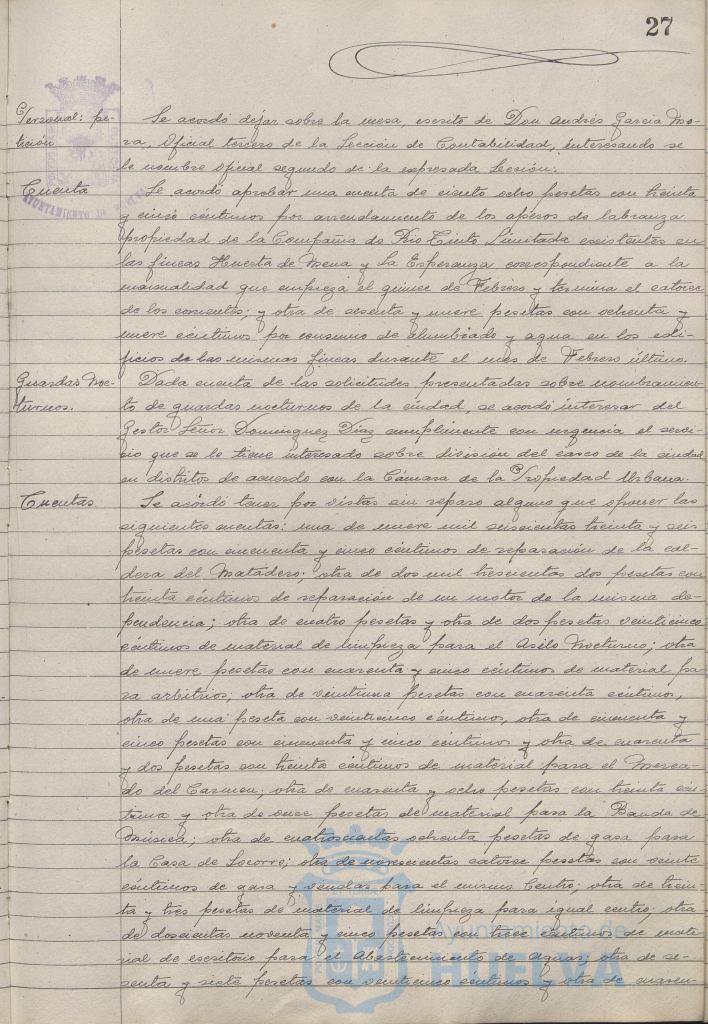 27
Personal: pe-
tición
Se acordó dejar sobre la mesa, escrito de Don Andrés García Mo-
ra, Oficial tercero de la Sección de Contabilidad, interesando se
le nombre oficial segundo de la expresada Sección.
Cuenta
Se acordó aprobar una cuenta de ciento ocho pesetas con treinta
y cinco céntimos por arrendamiento de los aperos de labranza
propiedad de la Compañia de Rio Tinto Limitada existentes en
las fincas Huerta de Mena y La Esperanza correspondiente a la
mensualidad que empieza el quince de Febrero y termina el catorce
de los corrientes; y otra de sesenta y nueve pesetas con ochenta y
nueve céntimos por consumo de alumbrado y agua en los edi-
ficios de las mismas fincas durante el mes de Febrero último.
Guardas Noc-
turnos.
Dada cuenta de las solicitudes presentadas sobre nombramien-
to de guardas nocturnos de la ciudad, se acordó interesar del
Gestor Señor Dominguez Diaz cumplimente con urgencia el servi-
cio que se le tiene interesado sobre división del casco de la ciudad
en distritos de acuerdo con la Cámara de la Propiedad Urbana.
Cuentas
Se acordó tener por vistas sin reparo alguno que oponer las
siguientes cuentas: una de nueve mil seiscientas treinta y seis
pesetas con cincuenta y cinco céntimos de reparación de la cal-
dera del Matadero; otra de dos mil trescientas dos pesetas con
treinta céntimos de reparación de un motor de la misma de-
pendencia; otra de cuatro pesetas y otra de dos pesetas veinticinco
céntimos de material de limpieza para el Asilo Nocturno; otra
de nueve pesetas con cuarenta y cinco céntimos de material pa-
ra arbitrios; otra de veintiuna pesetas con cuarenta céntimos,
otra de una peseta con veinticinco céntimos, otra de cincuenta y
cinco pesetas con cincuenta y cinco céntimos y otra de cuarenta
y dos pesetas con treinta céntimos de material para el Merca-
do del Carmen; otra de cuarenta y ocho pesetas con treinta cén-
timos y otra de once pesetas de material para la Banda de
Música; otra de cuatrocientas ochenta pesetas de gasa para
la Casa de Socorro; otra de novecientas catorce pesetas con veinte
céntimos de gasa y vendas para el mismo Centro; otra de trein-
ta y tres pesetas de material de limpieza para igual centro; otra
de doscientas noventa y cinco pesetas con trece céntimos de mate-
rial de escritorio para el Abastecimiento de Aguas; otra de se-
senta y siete pesetas con veinticinco céntimos y otra de cuaren-
Ayuntamiento de
HUELVA